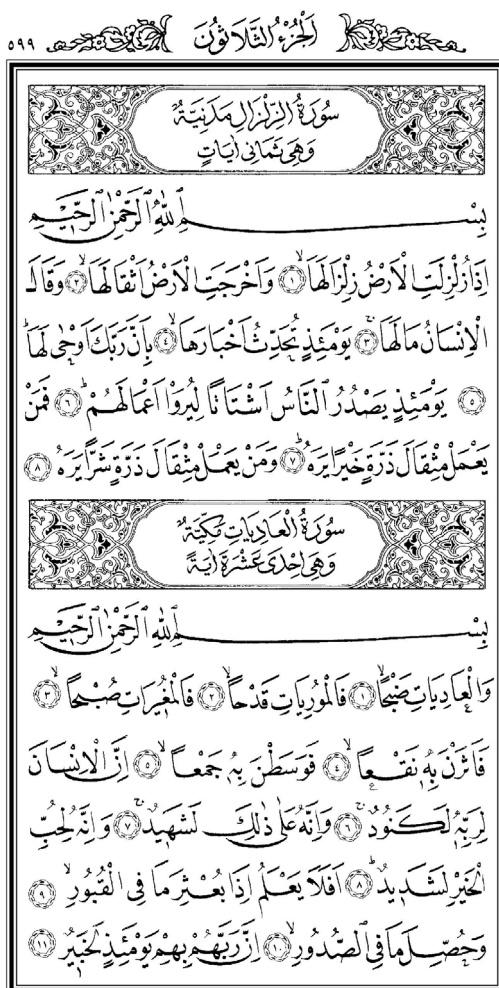 ٥٩٩ اَلْجُزْءُ الثَّلَاثُونَ
سُورَةُ الزِّلْزَالِ مَدَنِيَّةٌ
وَهِيَ ثَمَانِي اٰيَاتٍ
بِسْمِ اللّٰهِ الرَّحْمٰنِ الرَّحِيمِ
اِذَا زُلْزِلَتِ الْاَرْضُ زِلْزَالَهَاۙ ﴿١﴾ وَاَخْرَجَتِ الْاَرْضُ اَثْقَالَهَاۙ ﴿٢﴾ وَقَالَ
الْاِنْسَانُ مَالَهَاۚ ﴿٣﴾ يَوْمَئِذٍ تُحَدِّثُ اَخْبَارَهَاۙ ﴿٤﴾ بِاَنَّ رَبَّكَ اَوْحٰى لَهَاۜ
﴿٥﴾ يَوْمَئِذٍ يَصْدُرُ النَّاسُ اَشْتَاتًا لِيُرَوْا اَعْمَالَهُمْۜ ﴿٦﴾ فَمَنْ
يَعْمَلْ مِثْقَالَ ذَرَّةٍ خَيْرًا يَرَهُۜ ﴿٧﴾ وَمَنْ يَعْمَلْ مِثْقَالَ ذَرَّةٍ شَرًّا يَرَهُ ﴿٨﴾
سُورَةُ الْعَادِيَاتِ مَكِّيَّةٌ
وَهِيَ اِحْدٰى عَشْرَةَ اٰيَةً
بِسْمِ اللّٰهِ الرَّحْمٰنِ الرَّحِيمِ
وَالْعَادِيَاتِ ضَبْحًاۙ ﴿١﴾ فَالْمُورِيَاتِ قَدْحًاۙ ﴿٢﴾ فَالْمُغِيرَاتِ صُبْحًاۙ ﴿٣﴾
فَاَثَرْنَ بِهِ نَقْعًاۙ ﴿٤﴾ فَوَسَطْنَ بِهِ جَمْعًاۙ ﴿٥﴾ اِنَّ الْاِنْسَانَ
لِرَبِّهِ لَكَنُودٌۚ ﴿٦﴾ وَاِنَّهُ عَلٰى ذٰلِكَ لَشَهِيدٌۚ ﴿٧﴾ وَاِنَّهُ لِحُبِّ
الْخَيْرِ لَشَدِيدٌۜ ﴿٨﴾ اَفَلَا يَعْلَمُ اِذَا بُعْثِرَ مَا فِي الْقُبُورِۙ ﴿٩﴾
وَحُصِّلَ مَا فِي الصُّدُورِۙ ﴿١٠﴾ اِنَّ رَبَّهُمْ بِهِمْ يَوْمَئِذٍ لَخَبِيرٌ ﴿١١﴾